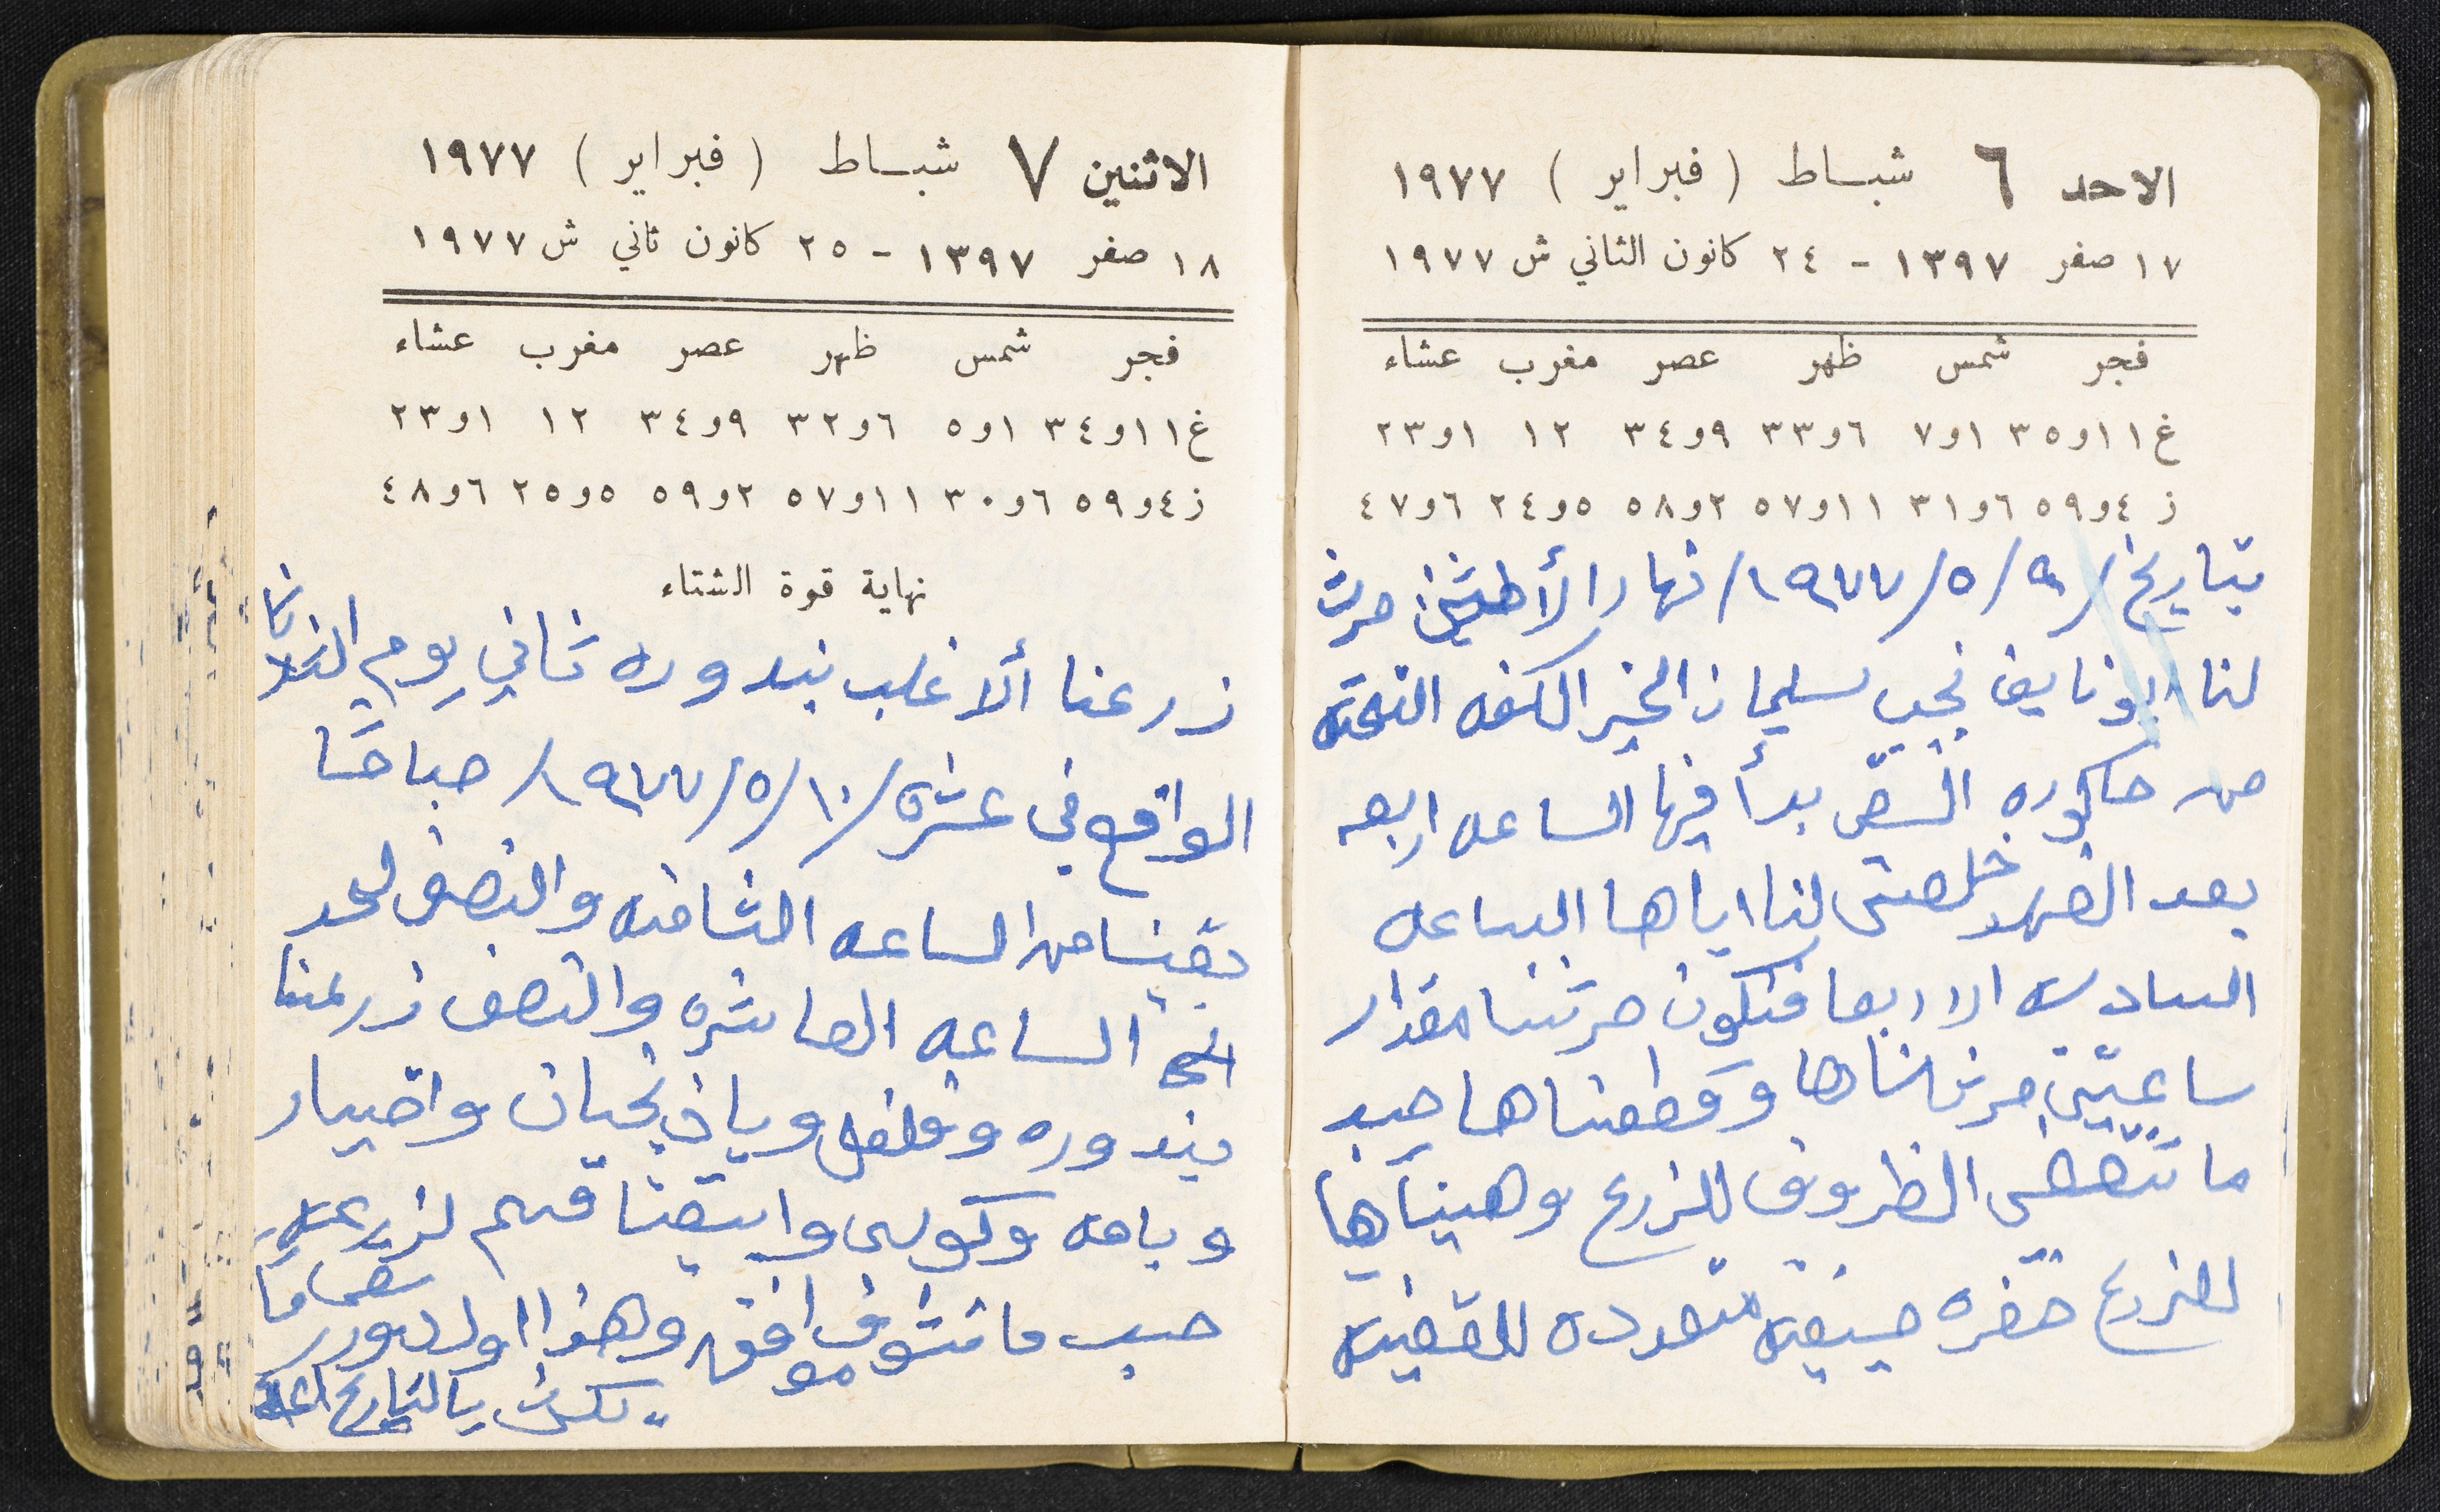 الاحد ٦ شباط (فبراير) ١٩٧٧
١٧ صفر ١٣٩٧ - ٢٤ كانون الثاني ش ١٩٧٧
فجر شمس ظهر عصر مغرب عشاء
غ ١١و٣٥ ١و٧ ٦و٣٣ ٩و٣٤ ١٢ ١و٢٣
ز ٤و٥٩ ٦و٣١ ١١و٥٧ ٢و٥٨ ٥و٢٤ ٦و٤٧
بتاريخ /٩/٥/١٩٧٧/ نهار الأطنين حرث
لنا ابو نايف نجيب سليمان الخير الكفه التحته
من حاكوره بدأ فيها الساعه اربعه
بعد الضهر خلصتى لنا اياها الساعه
السادسه الا اربعا فتكون حرثنا مقدار
ساعتين وقطعناها حسب
ما الظروف للزرع وهيناها
للزرع حفره متعدده
الاثنين ٧ شباط (فبراير) ١٩٧٧
١٨ صفر ١٣٩٧ - ٢٥ كانون ثاني ش ١٩٧٧
فجر شمس ظهر عصر مغرب عشاء
غ ١١و٣٤ ١و٥ ٦و٣٢ ٩و٣٤ ١٢ ١و٢٣
ز ٤و٥٩ ٦و٣٠ ١١و٥٧ ٢و٥٩ ٥و٢٥ ٦و٤٨
نهاية قوة الشتاء
زرعنا ألاغلب بندوره ثاني يوم الثلاثا
الواقع في عشره /١٠/٥/١٩٧٧/ صباحًا
بقينا من الساعه الثامنه والنصف لحد
الساعه العاشره والنصف زرعنا
بندوره وفلفل وباذنجان واخيار
وبامه وكوسى وابقينا قسم لزرعه
حسب ما نشوف موافق وهذا اول دور
بالتاريخ اعلاه